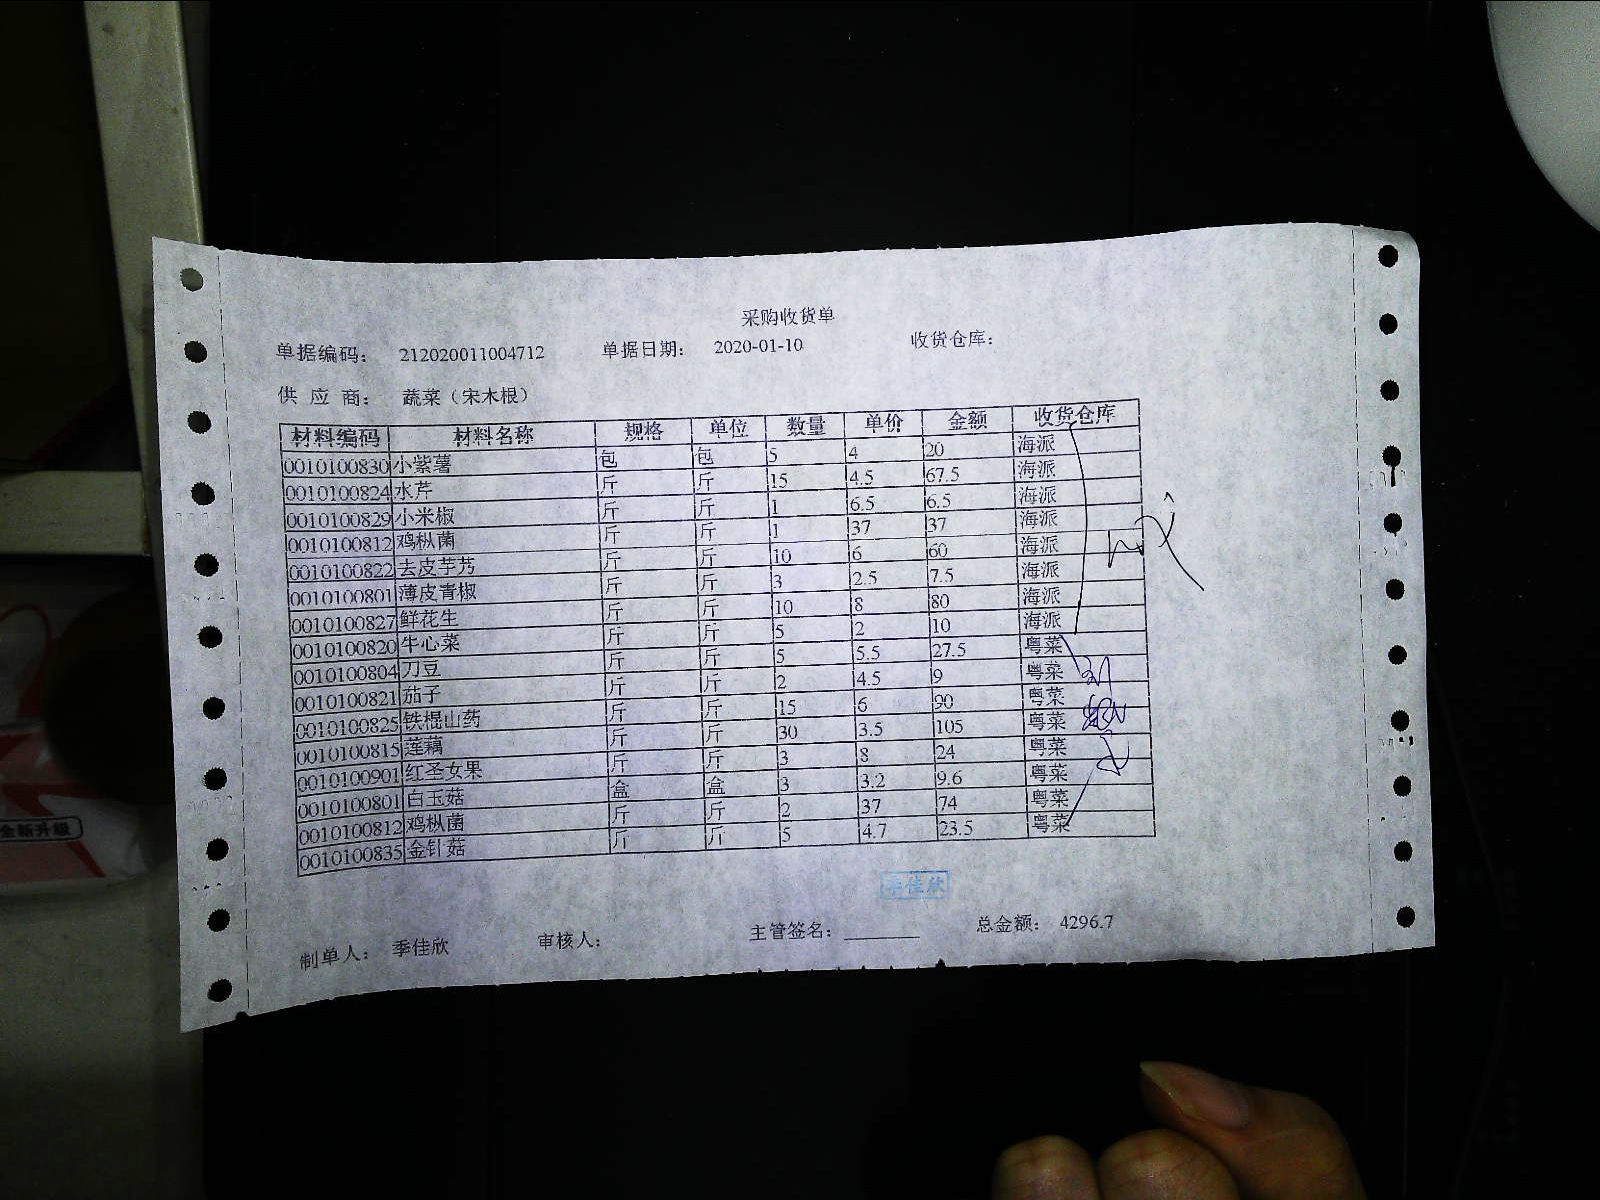 采购收货单
单据编码： 212020011004712 单据日期： 2020-01-10 收货仓库：
供 应 商： 蔬菜（宋木根）
材料编码 材料名称 规格 单位 数量 单价 金额 收货仓库
0010100830 小紫薯 包 包 5 4 20 海派
0010100824 水芹 斤 斤 15 4.5 67.5 海派
0010100829 小米椒 斤 斤 1 6.5 6.5 海派
0010100812 鸡枞菌 斤 斤 1 37 37 海派
0010100822 去皮芋艿 斤 斤 10 6 60 海派
0010100801 薄皮青椒 斤 斤 3 2.5 7.5 海派
0010100827 鲜花生 斤 斤 10 8 80 海派
0010100820 牛心菜 斤 斤 5 2 10 海派
0010100804 刀豆 斤 斤 5 5.5 27.5 粤菜
0010100821 茄子 斤 斤 2 4.5 9 粤菜
0010100825 铁棍山药 斤 斤 15 6 90 粤菜
0010100815 莲藕 斤 斤 30 3.5 105 粤菜
0010100901 红圣女果 斤 斤 3 8 24 粤菜
0010100801 白玉菇 盒 盒 3 3.2 9.6 粤菜
0010100812 鸡枞菌 斤 斤 2 37 74 粤菜
0010100835 金针菇 斤 斤 5 4.7 23.5 粤菜
季佳欣
制单人： 季佳欣 审核人： 主管签名： 总金额： 4296.7
全新升级